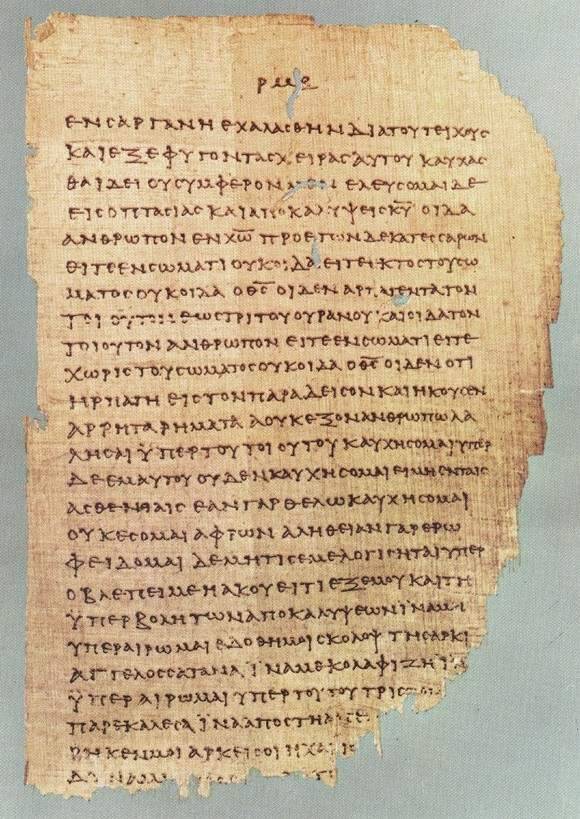 ρμε
ΕΝ ΣΑΡΓΑΝΗ ΕΧΑΛΑΣΘΗΝ ΔΙΑ ΤΟΥ ΤΕΙΧΟΥΣ
ΚΑΙ ΕΞΕΦΥΓΟΝ ΤΑΣ ΧΕΙΡΑΣ ΑΥΤΟΥ ΚΑΥΧΑΣ
ΘΑΙ ΔΕΙ ΟΥ ΣΥΜΦΕΡΟΝ ΜΕΝ ΕΛΕΥΣΟΜΑΙ ΔΕ
ΕΙΣ ΟΠΤΑΣΙΑΣ ΚΑΙ ΑΠΟΚΑΛΥΨΕΙΣ Κ̅Υ̅ ΟΙΔΑ
ΑΝΘΡΩΠΟΝ ΕΝ Χ̅Ω̅ ΠΡΟ ΕΤΩΝ ΔΕΚΑΤΕΣΣΑΡΩΝ
ΕΙΤΕ ΕΝ ΣΩΜΑΤΙ ΟΥΚ ΟΙΔΑ ΕΙΤΕ ΕΚΤΟΣ ΤΟΥ ΣΩ
ΜΑΤΟΣ ΟΥΚ ΟΙΔΑ Ο Θ̅Σ̅ ΟΙΔΕΝ ΑΡΠΑΓΕΝΤΑ ΤΟΝ
ΤΟΙΟΥΤΟΝ ΕΩΣ ΤΡΙΤΟΥ ΟΥΡΑΝΟΥ ΚΑΙ ΟΙΔΑ ΤΟΝ
ΤΟΙΟΥΤΟΝ ΑΝΘΡΩΠΟΝ ΕΙΤΕ ΕΝ ΣΩΜΑΤΙ ΕΙΤΕ
ΧΩΡΙΣ ΤΟΥ ΣΩΜΑΤΟΣ ΟΥΚ ΟΙΔΑ Ο Θ̅Σ̅ ΟΙΔΕΝ ΟΤΙ
ΗΡΠΑΓΗ ΕΙΣ ΤΟΝ ΠΑΡΑΔΕΙΣΟΝ ΚΑΙ ΗΚΟΥΣΕΝ
ΑΡΡΗΤΑ ΡΗΜΑΤΑ Α ΟΥΚ ΕΞΟΝ ΑΝΘΡΩΠΩ ΛΑ
ΛΗΣΑΙ ΫΠΕΡ ΤΟΥ ΤΟΙΟΥΤΟΥ ΚΑΥΧΗΣΟΜΑΙ ΥΠΕΡ
ΔΕ ΕΜΑΥΤΟΥ ΟΥΔΕΝ ΚΑΥΧΗΣΟΜΑΙ ΕΙ ΜΗ ΕΝ ΤΑΙΣ
ΑΣΘΕΝΙΑΙΣ ΕΑΝ ΓΑΡ ΘΕΛΩ ΚΑΥΧΗΣΟΜΑΙ
ΟΥΚ ΕΣΟΜΑΙ ΑΦΡΩΝ ΑΛΗΘΕΙΑΝ ΓΑΡ ΕΡΩ
ΦΕΙΔΟΜΑΙ ΔΕ ΜΗ ΤΙΣ ΕΜΕ ΛΟΓΙΣΗΤΑΙ ΥΠΕΡ
Ο ΒΛΕΠΕΙ ΜΕ Η ΑΚΟΥΕΙ ΤΙ ΕΞ ΕΜΟΥ ΚΑΙ ΤΗ
ΫΠΕΡΒΟΛΗ ΤΩΝ ΑΠΟΚΑΛΥΨΕΩΝ ΪΝΑ ΜΗ
ΥΠΕΡΑΙΡΩΜΑΙ ΕΔΟΘΗ ΜΟΙ ΣΚΟΛΟΨ ΤΗ ΣΑΡΚΙ
ΑΓΓΕΛΟΣ ΣΑΤΑΝΑ ΪΝΑ ΜΕ ΚΟΛΑΦΙΖΗ ΪΝΑ
ΫΠΕΡΑΙΡΩΜΑΙ ΥΠΕΡ ΤΟΥΤΟΥ ΤΡΙΣ
ΠΑΡΕΚΑΛΕΣΑ ΪΝΑ ΑΠΟΣΤΗ ΑΠ Ε
ΡΗΚΕΝ ΜΟΙ ΑΡΚΕΙ ΣΟΙ Η ΧΑΡΙΣ